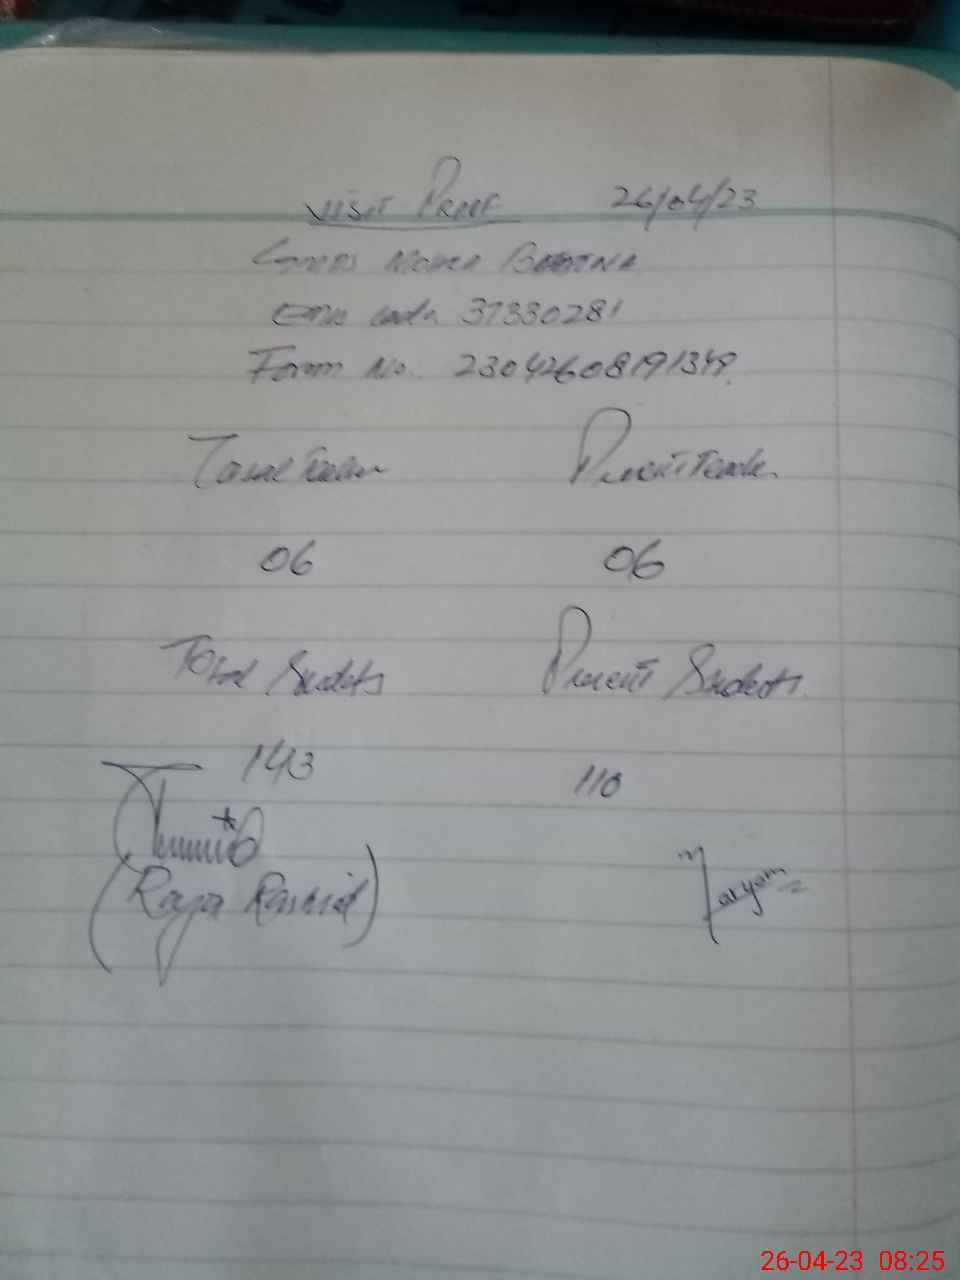 Visit Proof 26/04/23
Mohra
Emis code 37330281
Form No. 23042608191349
Total Teacher Present Teacher
06 06
Total Students Present Students
143 110
(Raja Rashid) Maryam
26-04-23 08:25